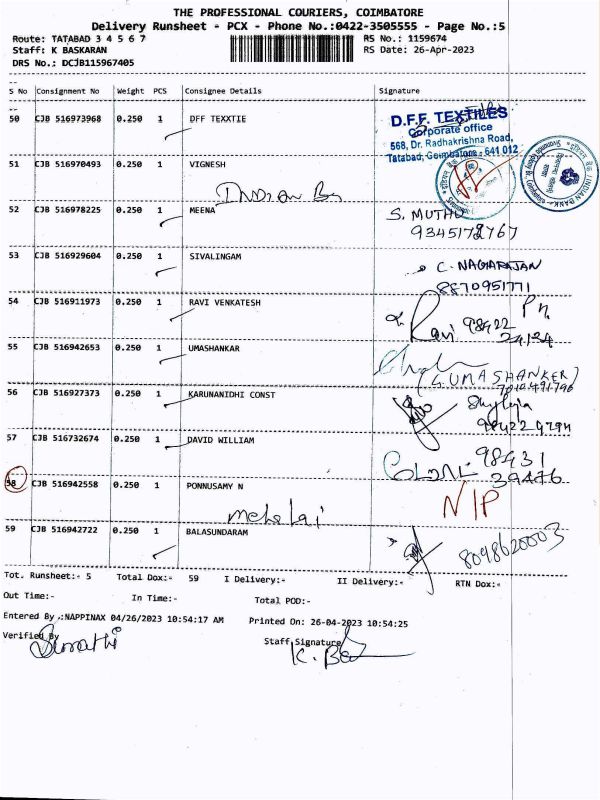 THE PROFESSIONAL COURIERS, COIMBATORE
Delivery Runsheet - PCX - Phone No.:0422-3505555 - Page No.:5
Route: TATABAD 3 4 5 6 7 RS No.: 1159674
Staff: K BASKARAN RS Date: 26-Apr-2023
DRS No.: DCJB115967405
S No Consignment No Weight PCS Consignee Details Signature
50 CJB 516973968 0.250 1 DFF TEXXTIE
D.F.F. TEXTILES
Corporate office
568, Dr. Radhakrishna Road,
Tatabad, Coimbatore - 641 012
51 CJB 516970493 0.250 1 VIGNESH
Indian
INDIAN BANK
52 CJB 516978225 0.250 1 MEENA
S. MUTHU
9345172767
53 CJB 516929604 0.250 1 SIVALINGAM
C. NAGARAJAN
8870951771
54 CJB 516911973 0.250 1 RAVI VENKATESH
Ravi 98422
24124
55 CJB 516942653 0.250 1 UMASHANKAR
(G.UMASHANKER)
56 CJB 516927373 0.250 1 KARUNANIDHI CONST
57 CJB 516732674 0.250 1 DAVID WILLIAM
98431
39476
58 CJB 516942558 0.250 1 PONNUSAMY N
N/P
59 CJB 516942722 0.250 1 BALASUNDARAM
8098620003
Tot. Runsheet:- 5 Total Dox:- 59 I Delivery:- II Delivery:- RTN Dox:-
Out Time:- In Time:- Total POD:-
Entered By :NAPPINAX 04/26/2023 10:54:17 AM Printed On: 26-04-2023 10:54:25
Verified By Staff Signature
K. Ba